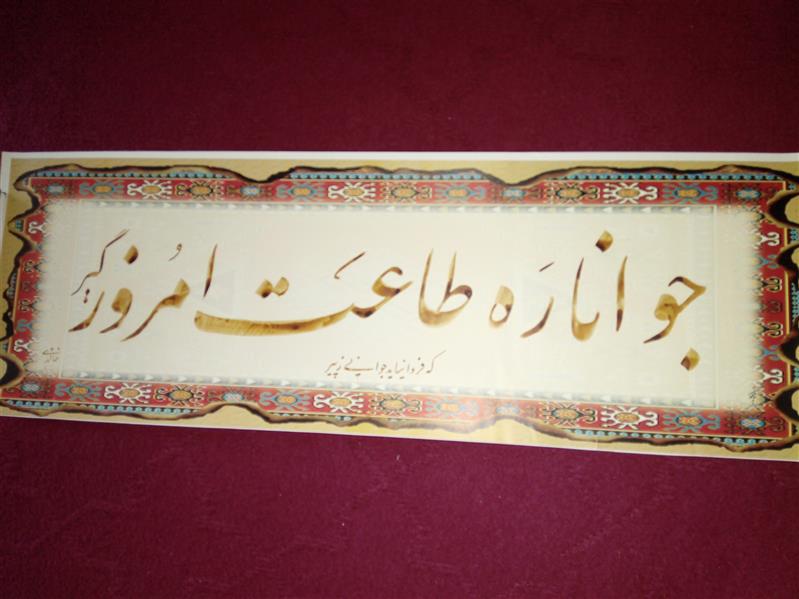 جوانا رَه طاعت امُروز گیر
که فردا نیاید جوانی ز پیر